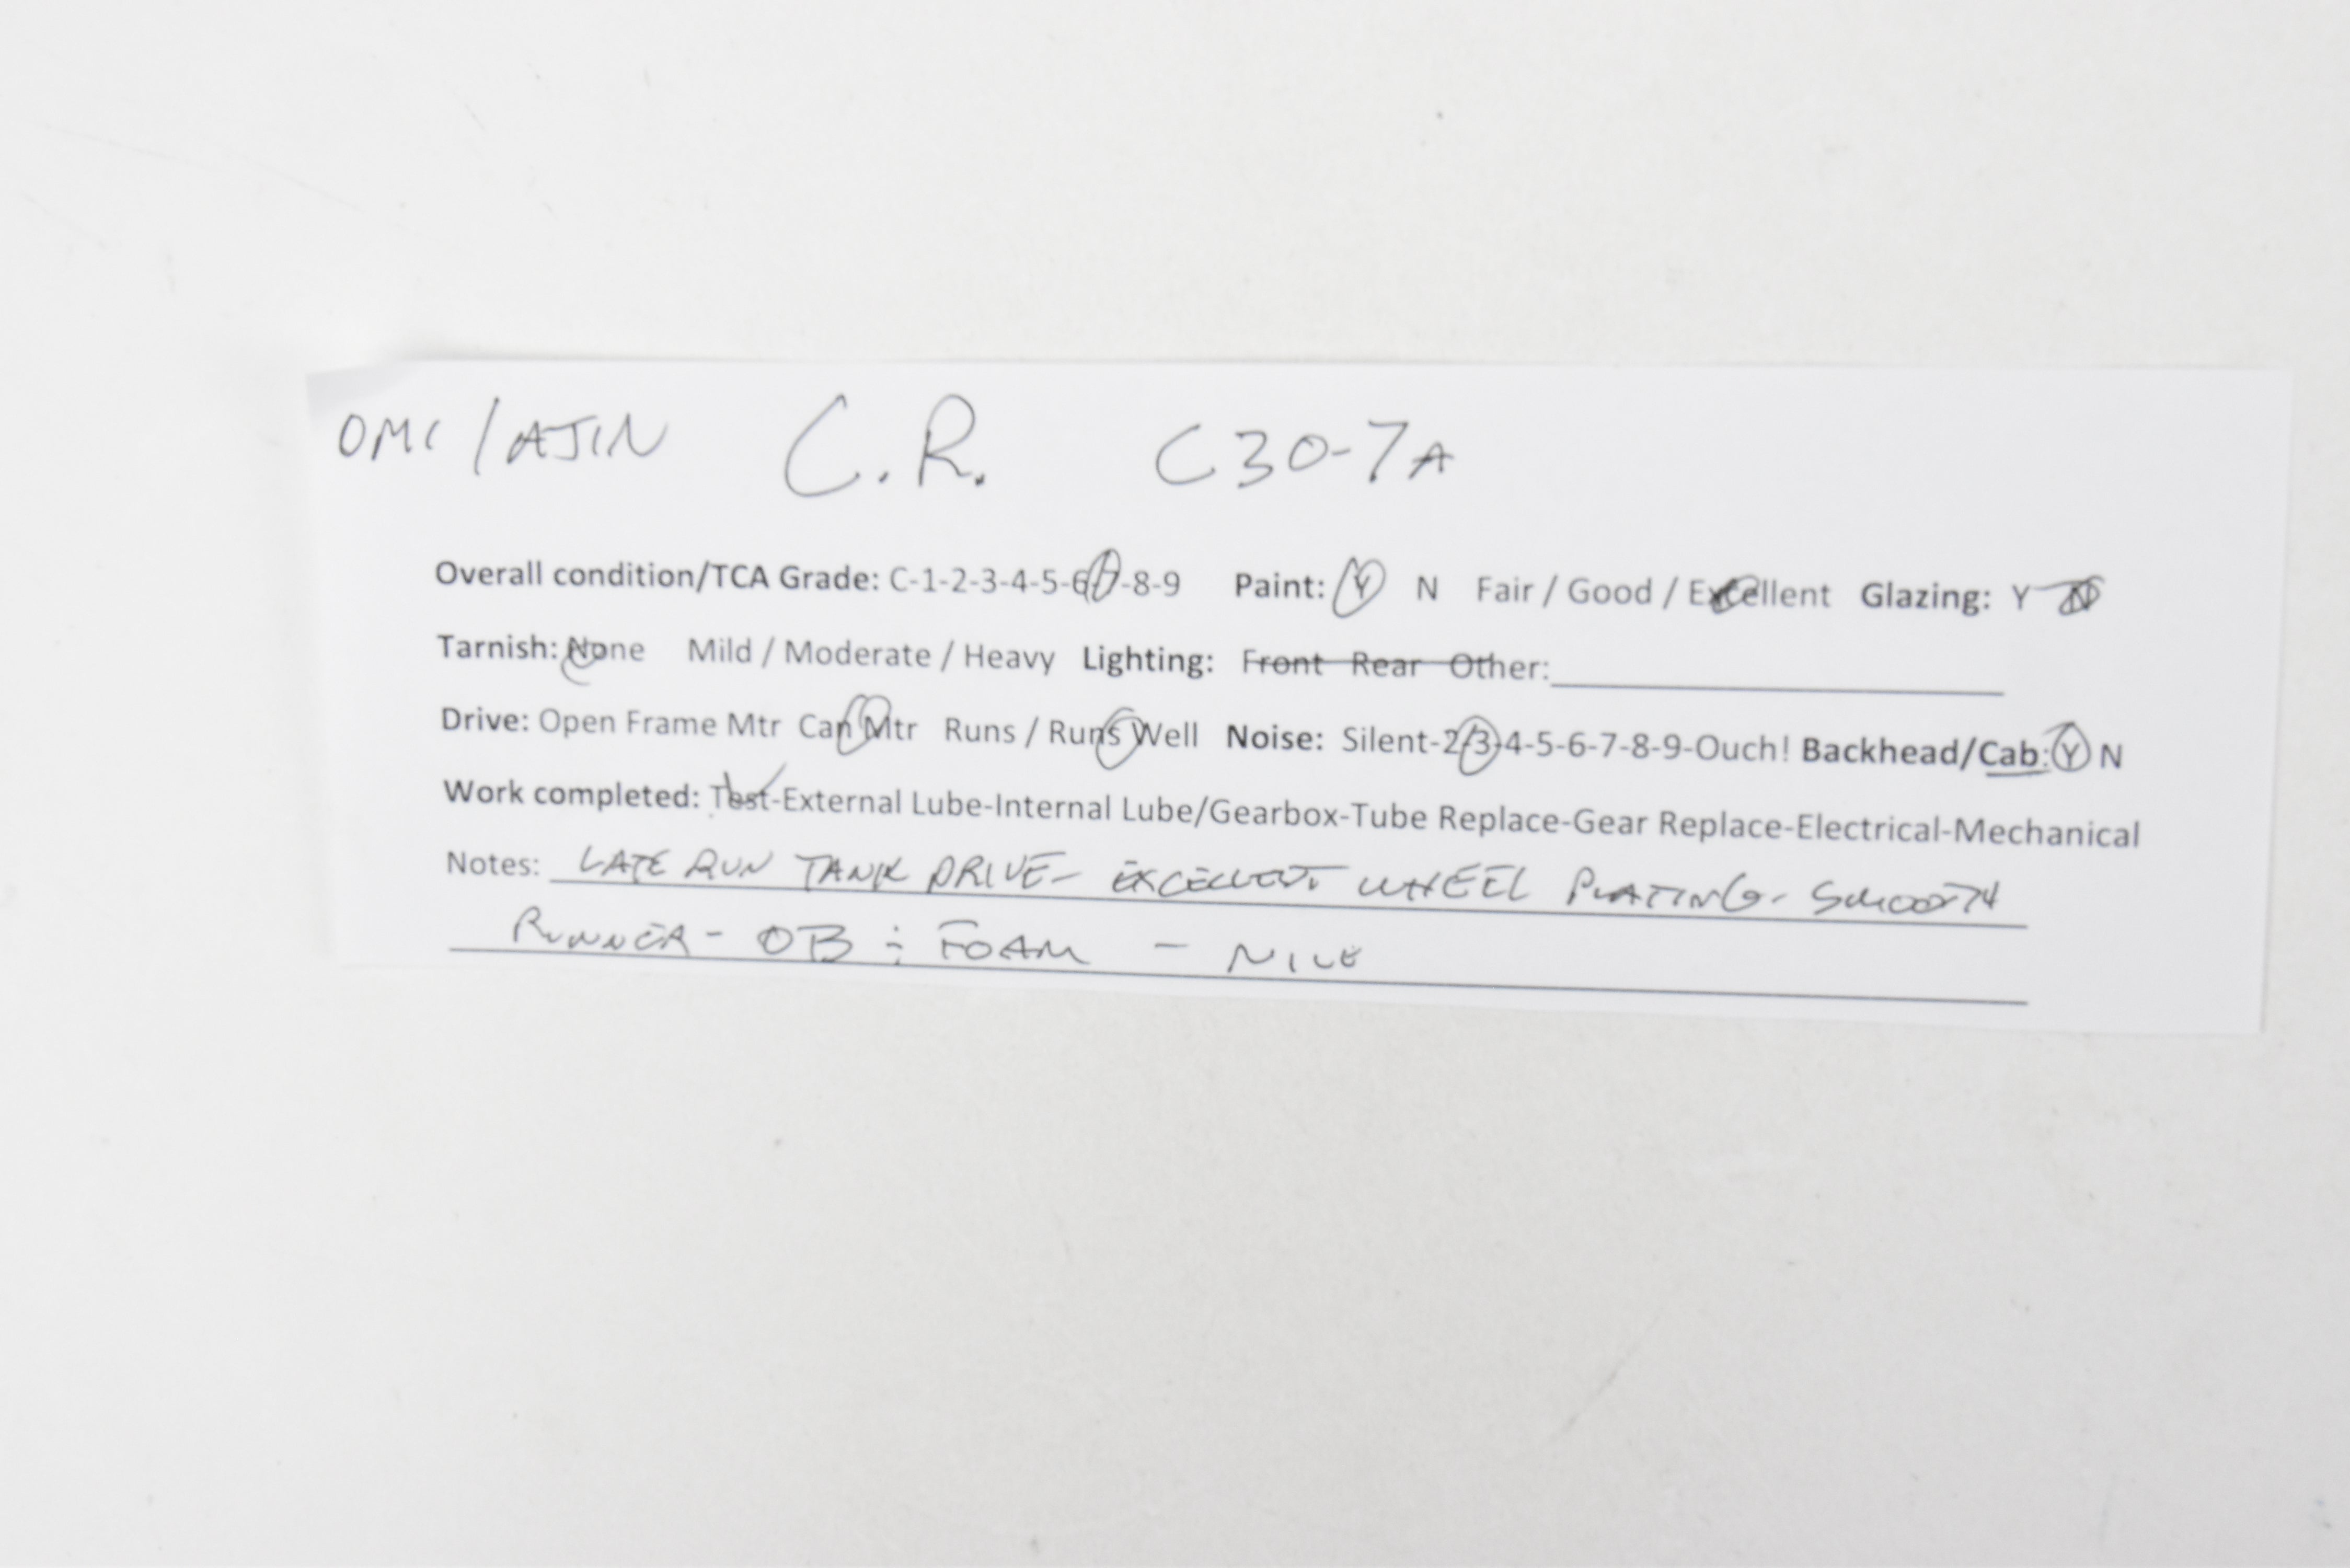 OMI/AJIN C.R. C30-7A
Overall condition/TCA Grade: C-1-2-3-4-5-6-7-8-9 Paint: Y N Fair / Good / Excellent Glazing: Y N
Tarnish: None Mild / Moderate / Heavy Lighting: Front Rear Other:
Drive: Open Frame Mtr Can Mtr Runs / Runs Well Noise: Silent-2-3-4-5-6-7-8-9-Ouch! Backhead/Cab: Y N
Work completed: Test-External Lube-Internal Lube/Gearbox-Tube Replace-Gear Replace-Electrical-Mechanical
Notes: LATE RUN TANK DRIVE- EXCELLENT WHEEL PLATING- SMOOTH
RUNNER- OB ÷ FOAM - NICE